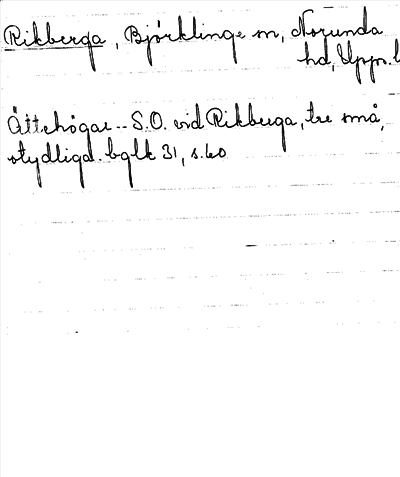 Rikberga, Björklinge sn, Norunda
hd, Uppl. l
Ättehögar -- S.O. vid Rikberga, tre små,
otydliga. bglk 31, s. 60